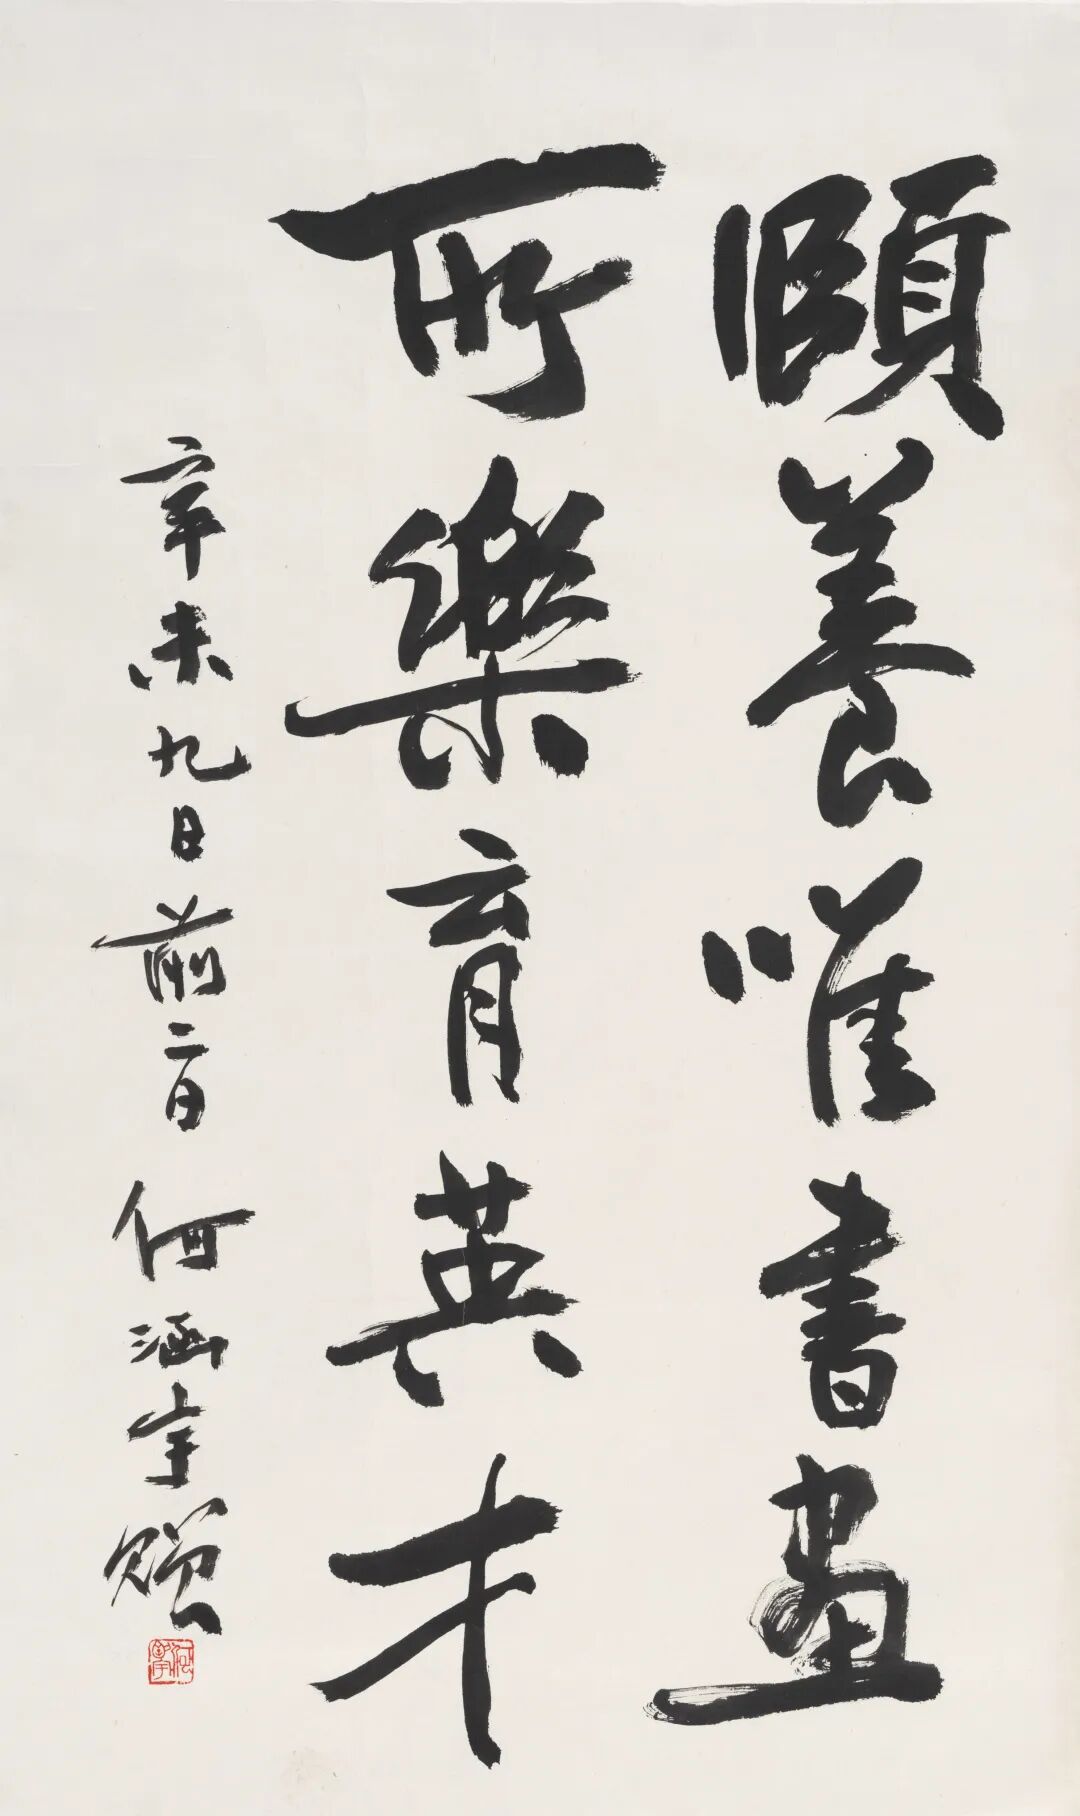 頤養唯書畫
所樂育英才
辛未九日前二日 何涵宇贈